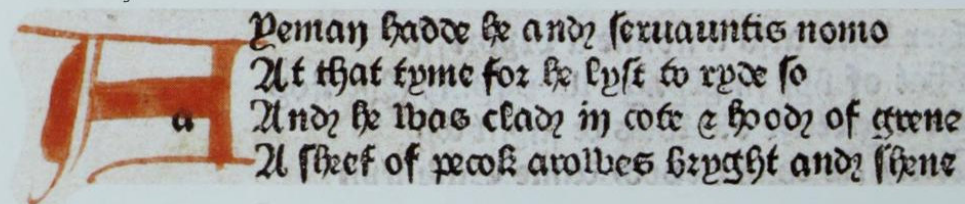 A Yeman hadde he and seruauntis nomo
At that tyme for he lyst to ryde so
a And he was clad in cote & hood of grene
A sheef of pecok arowes bryght and shene